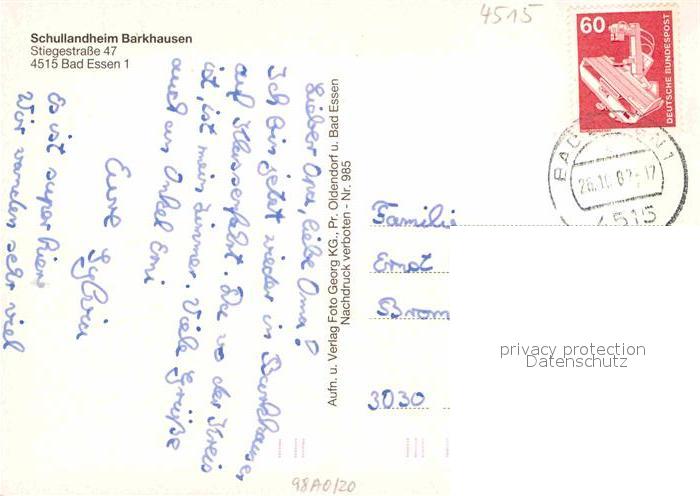 4515
Schullandheim Barkhausen
Stiegestraße 47
4515 Bad Essen 1
60
DEUTSCHE BUNDESPOST
BAD ESSEN 1
26.10.82-17
4515
Lieber Opa, liebe Oma!
Ich bin jetzt wieder in Barkhausen
auf Klassenfahrt. Da wo der Kreis
ist, ist mein Zimmer. Viele Grüße
auch an Onkel Erni
Eure Sylvia
Es ist super hier
Wir wandern sehr viel
Aufn. u. Verlag Foto Georg KG., Pr. Oldendorf u. Bad Essen
Nachdruck verboten - Nr. 985
Familie
Ernst
Brom
3030
privacy protection
Datenschutz
98A0/20